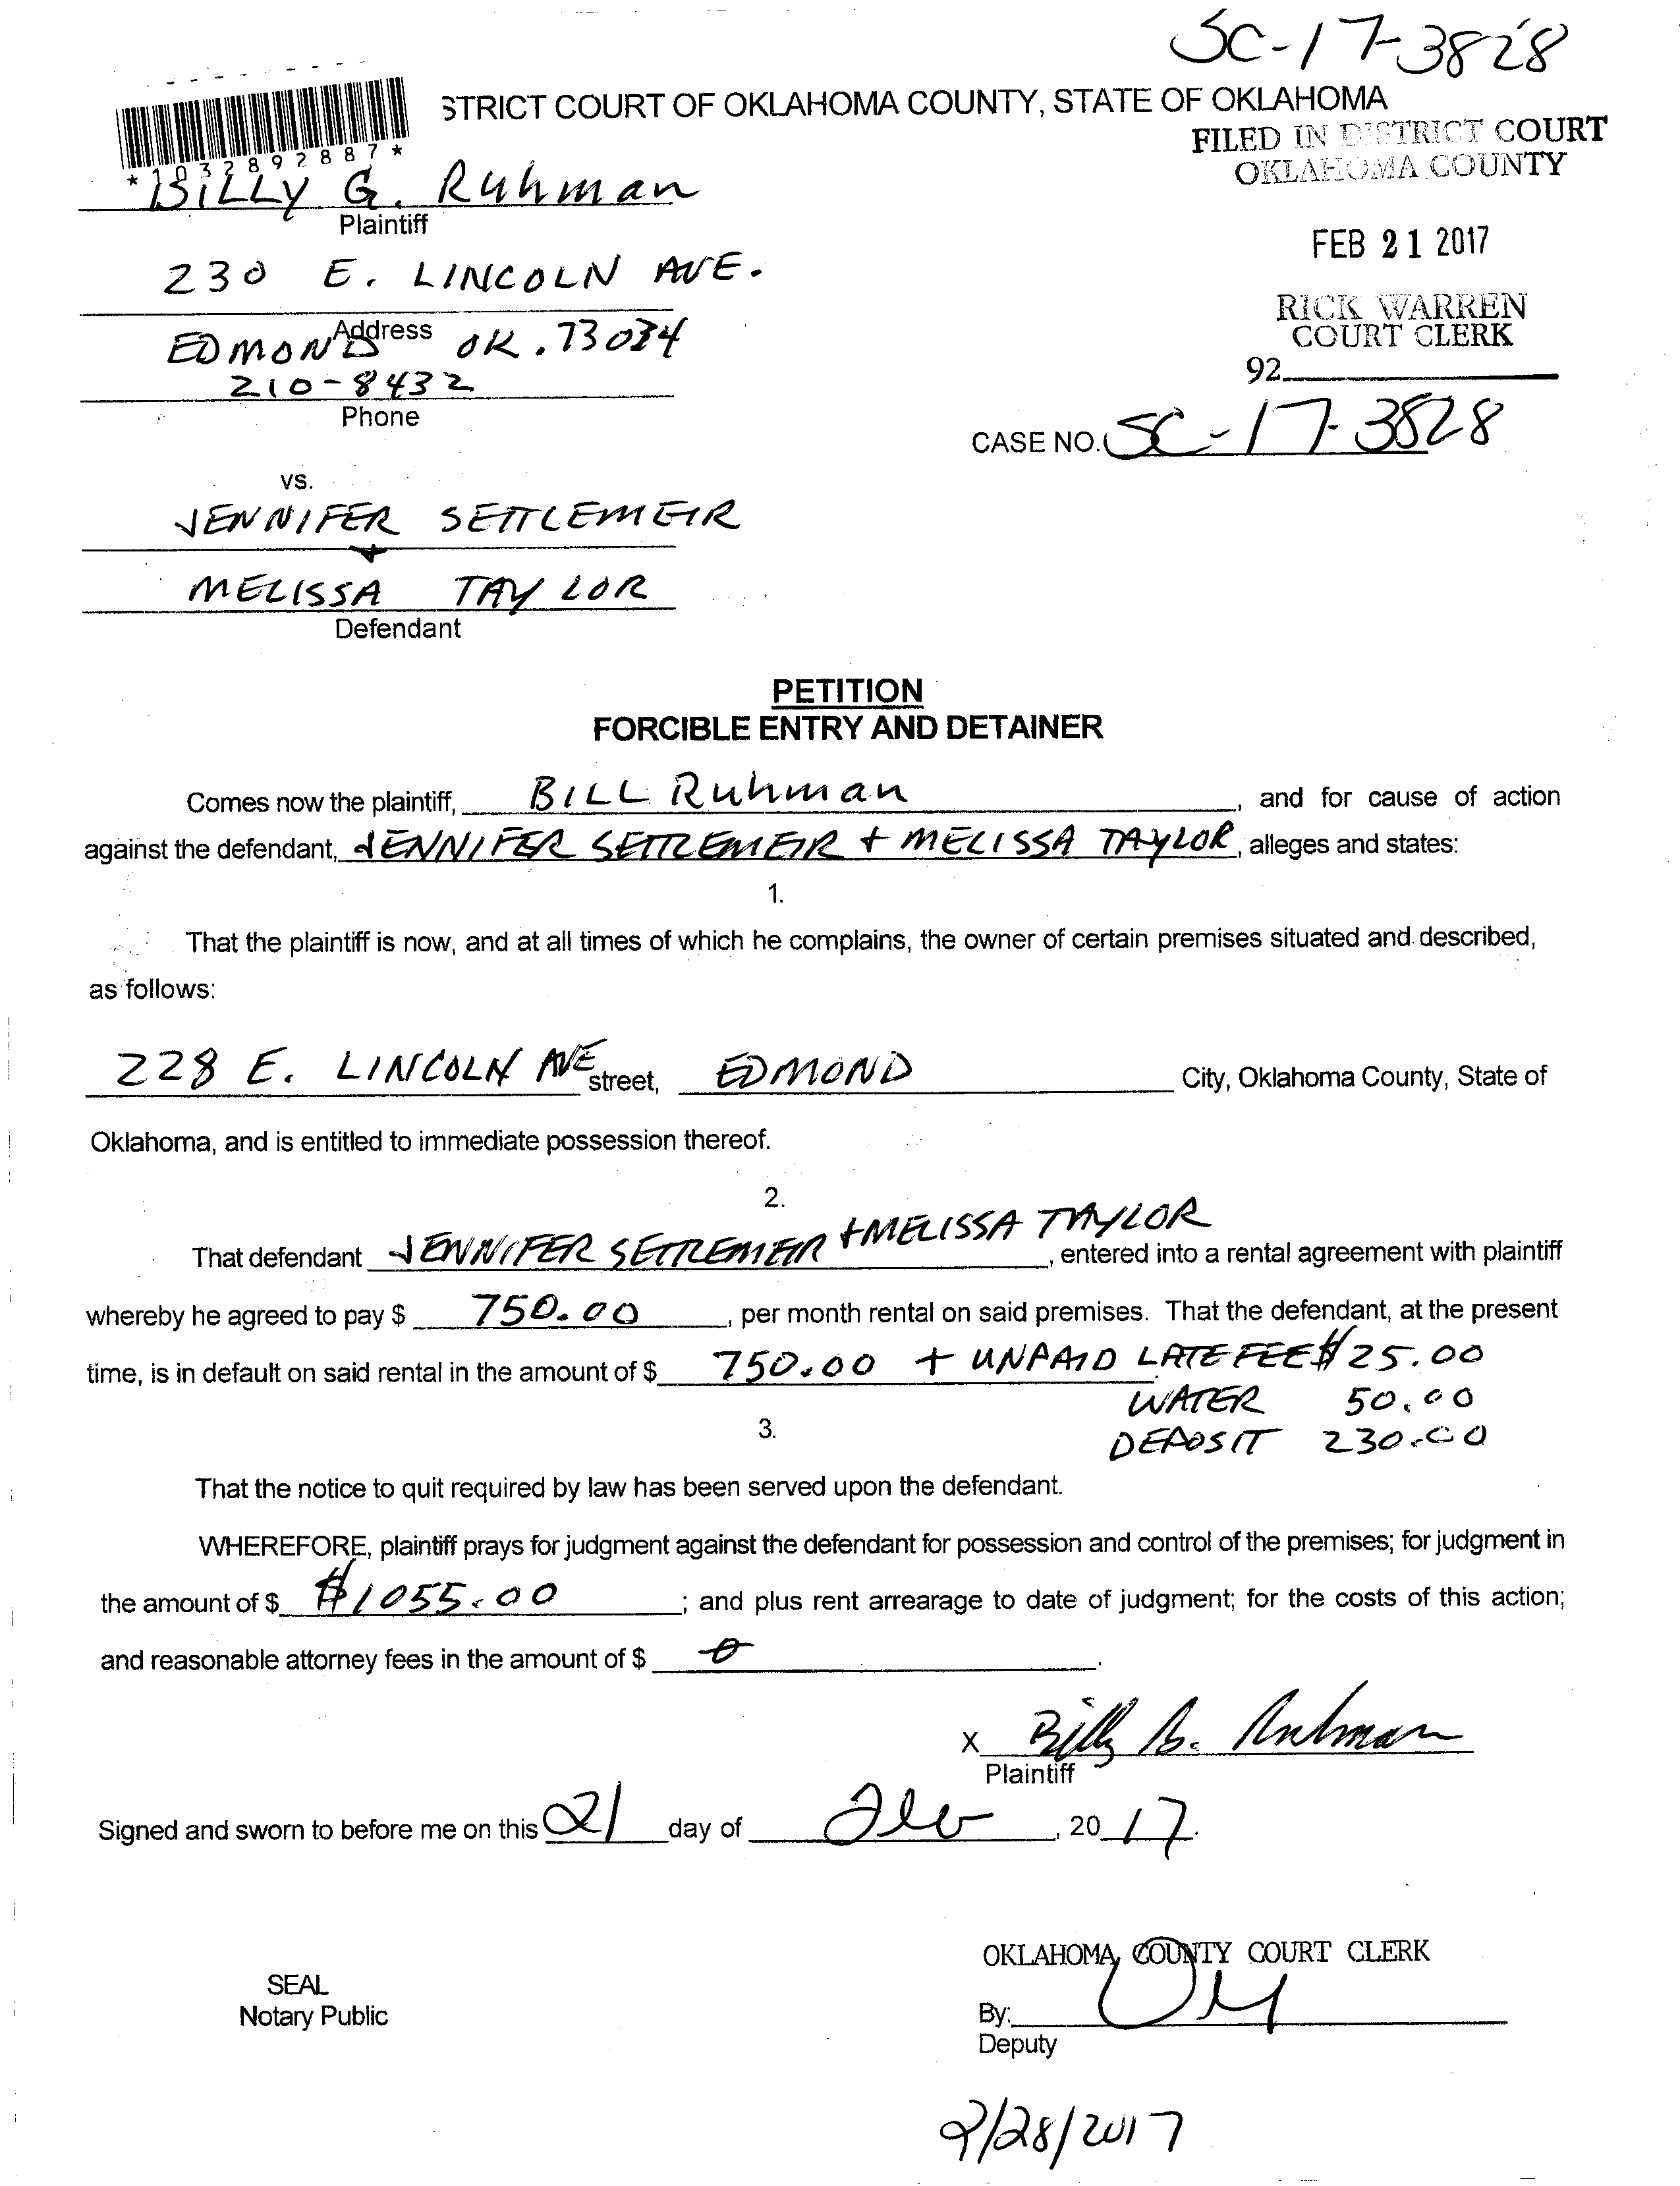 SC-17-3828
STRICT COURT OF OKLAHOMA COUNTY, STATE OF OKLAHOMA
*1032892887*
FILED IN DISTRICT COURT
OKLAHOMA COUNTY
BILLY G. Ruhman
Plaintiff
FEB 21 2017
230 E. LINCOLN AVE.
RICK WARREN
COURT CLERK
Address
EDMOND OK. 73034
92
210-8432
Phone
CASE NO. SC-17-3828
vs.
JENNIFER SETTLEMEIR
+
MELISSA TAYLOR
Defendant
PETITION
FORCIBLE ENTRY AND DETAINER
Comes now the plaintiff, BILL Ruhman, and for cause of action
against the defendant, JENNIFER SETTLEMEIR + MELISSA TAYLOR, alleges and states:
1.
That the plaintiff is now, and at all times of which he complains, the owner of certain premises situated and described,
as follows:
228 E. LINCOLN AVE street, EDMOND City, Oklahoma County, State of
Oklahoma, and is entitled to immediate possession thereof.
2.
That defendant JENNIFER SETTLEMEIR + MELISSA TAYLOR, entered into a rental agreement with plaintiff
whereby he agreed to pay $ 750.00, per month rental on said premises. That the defendant, at the present
time, is in default on said rental in the amount of $ 750.00 + UNPAID LATE FEE $ 25.00
WATER 50.00
3.
DEPOSIT 230.00
That the notice to quit required by law has been served upon the defendant.
WHEREFORE, plaintiff prays for judgment against the defendant for possession and control of the premises; for judgment in
the amount of $ $1055.00; and plus rent arrearage to date of judgment; for the costs of this action;
and reasonable attorney fees in the amount of $ 0.
X Billy G. Ruhman
Plaintiff
Signed and sworn to before me on this 21 day of Feb, 2017.
OKLAHOMA COUNTY COURT CLERK
SEAL
Notary Public
By:
Deputy
2/28/2017